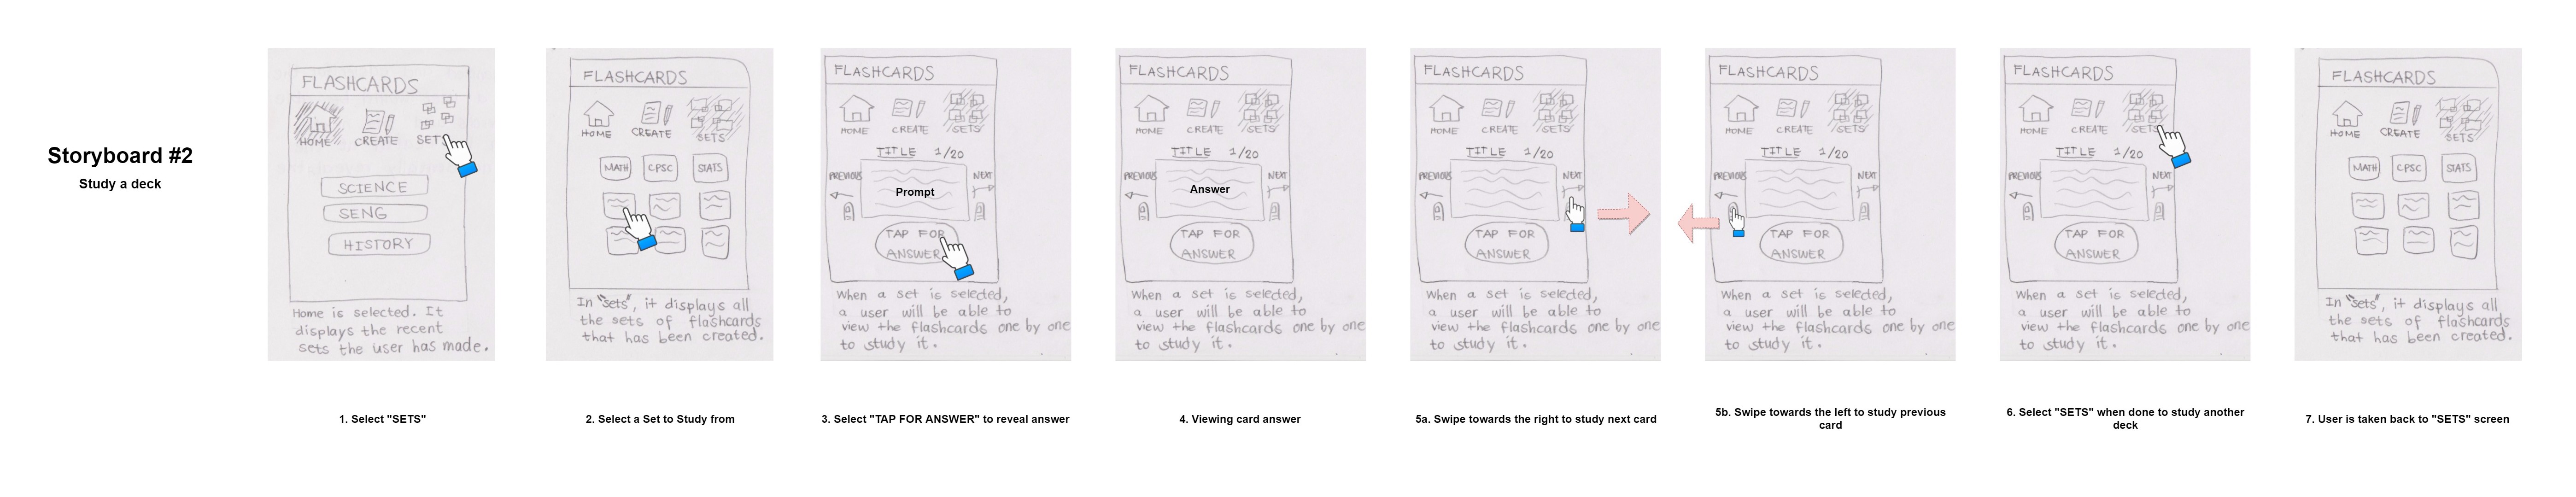 Storyboard #2
Study a deck
FLASHCARDS
HOME CREATE SETS
SCIENCE
SENG
HISTORY
Home is selected. It
displays the recent
sets the user has made.
1. Select "SETS"
FLASHCARDS
HOME CREATE SETS
MATH CPSC STATS
In "sets", it displays all
the sets of flashcards
that has been created.
2. Select a Set to Study from
FLASHCARDS
HOME CREATE SETS
TITLE 1/20
PREVIOUS NEXT
Prompt
TAP FOR
ANSWER
When a set is selected,
a user will be able to
view the flashcards one by one
to study it.
3. Select "TAP FOR ANSWER" to reveal answer
FLASHCARDS
HOME CREATE SETS
TITLE 1/20
PREVIOUS NEXT
Answer
TAP FOR
ANSWER
When a set is selected,
a user will be able to
view the flashcards one by one
to study it.
4. Viewing card answer
FLASHCARDS
HOME CREATE SETS
TITLE 1/20
PREVIOUS NEXT
TAP FOR
ANSWER
When a set is selected,
a user will be able to
view the flashcards one by one
to study it.
5a. Swipe towards the right to study next card
FLASHCARDS
HOME CREATE SETS
TITLE 1/20
PREVIOUS NEXT
TAP FOR
ANSWER
When a set is selected,
a user will be able to
view the flashcards one by one
to study it.
5b. Swipe towards the left to study previous
card
FLASHCARDS
HOME CREATE SETS
TITLE 1/20
PREVIOUS NEXT
TAP FOR
ANSWER
When a set is selected,
a user will be able to
view the flashcards one by one
to study it.
6. Select "SETS" when done to study another
deck
FLASHCARDS
HOME CREATE SETS
MATH CPSC STATS
In "sets", it displays all
the sets of flashcards
that has been created.
7. User is taken back to "SETS" screen